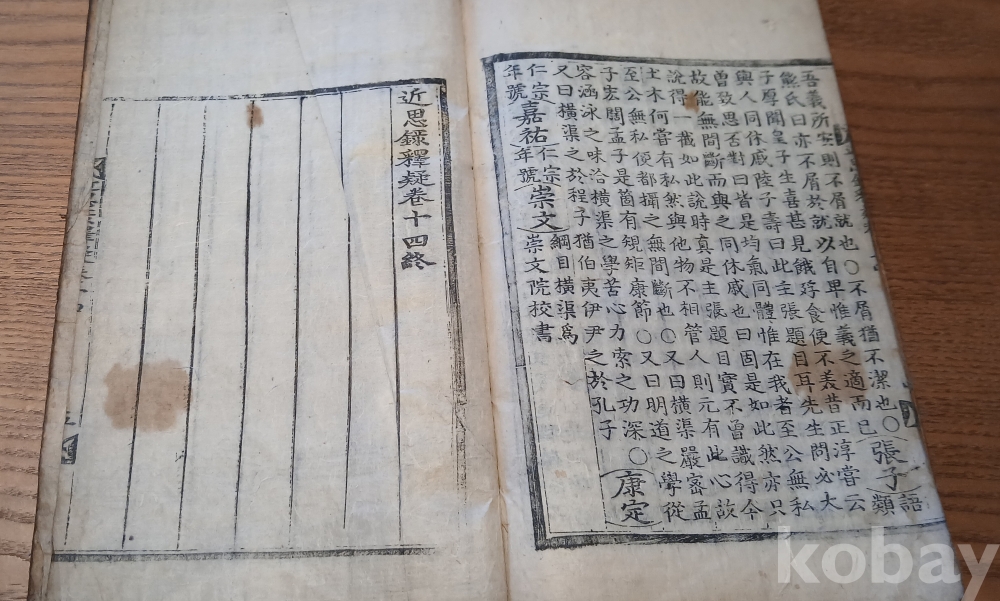 吾義所安則不屑就也○不屑猶不潔也○
熊氏曰亦不屑於就以自卑惟義之適而已
張子
語類
子厚聞皇子生喜甚見餓殍食便不美昔正淳嘗云
與人同休戚陸子壽曰此主張題目耳先生問必大
曾致思否對曰皆是均氣同體惟在我者至公無私
故能無間斷而與之同休戚也曰固是如此然亦只
說得一截如此說時真是主張題目實不曾識得今
土木何嘗有私然與他物不相管人則元有此心故
至公無私便都攝之無間斷也○又曰橫渠嚴密孟
子宏闊孟子是箇有規矩康節○又曰明道之學從
容涵泳之味洽橫渠之學苦心力索之功深○
又曰橫渠之於程子猶伯夷伊尹之於孔子
康定
仁宗
年號
嘉祐
仁宗
年號
崇文
綱目橫渠爲
崇文院校書
近思録釋疑卷十四終
kobay